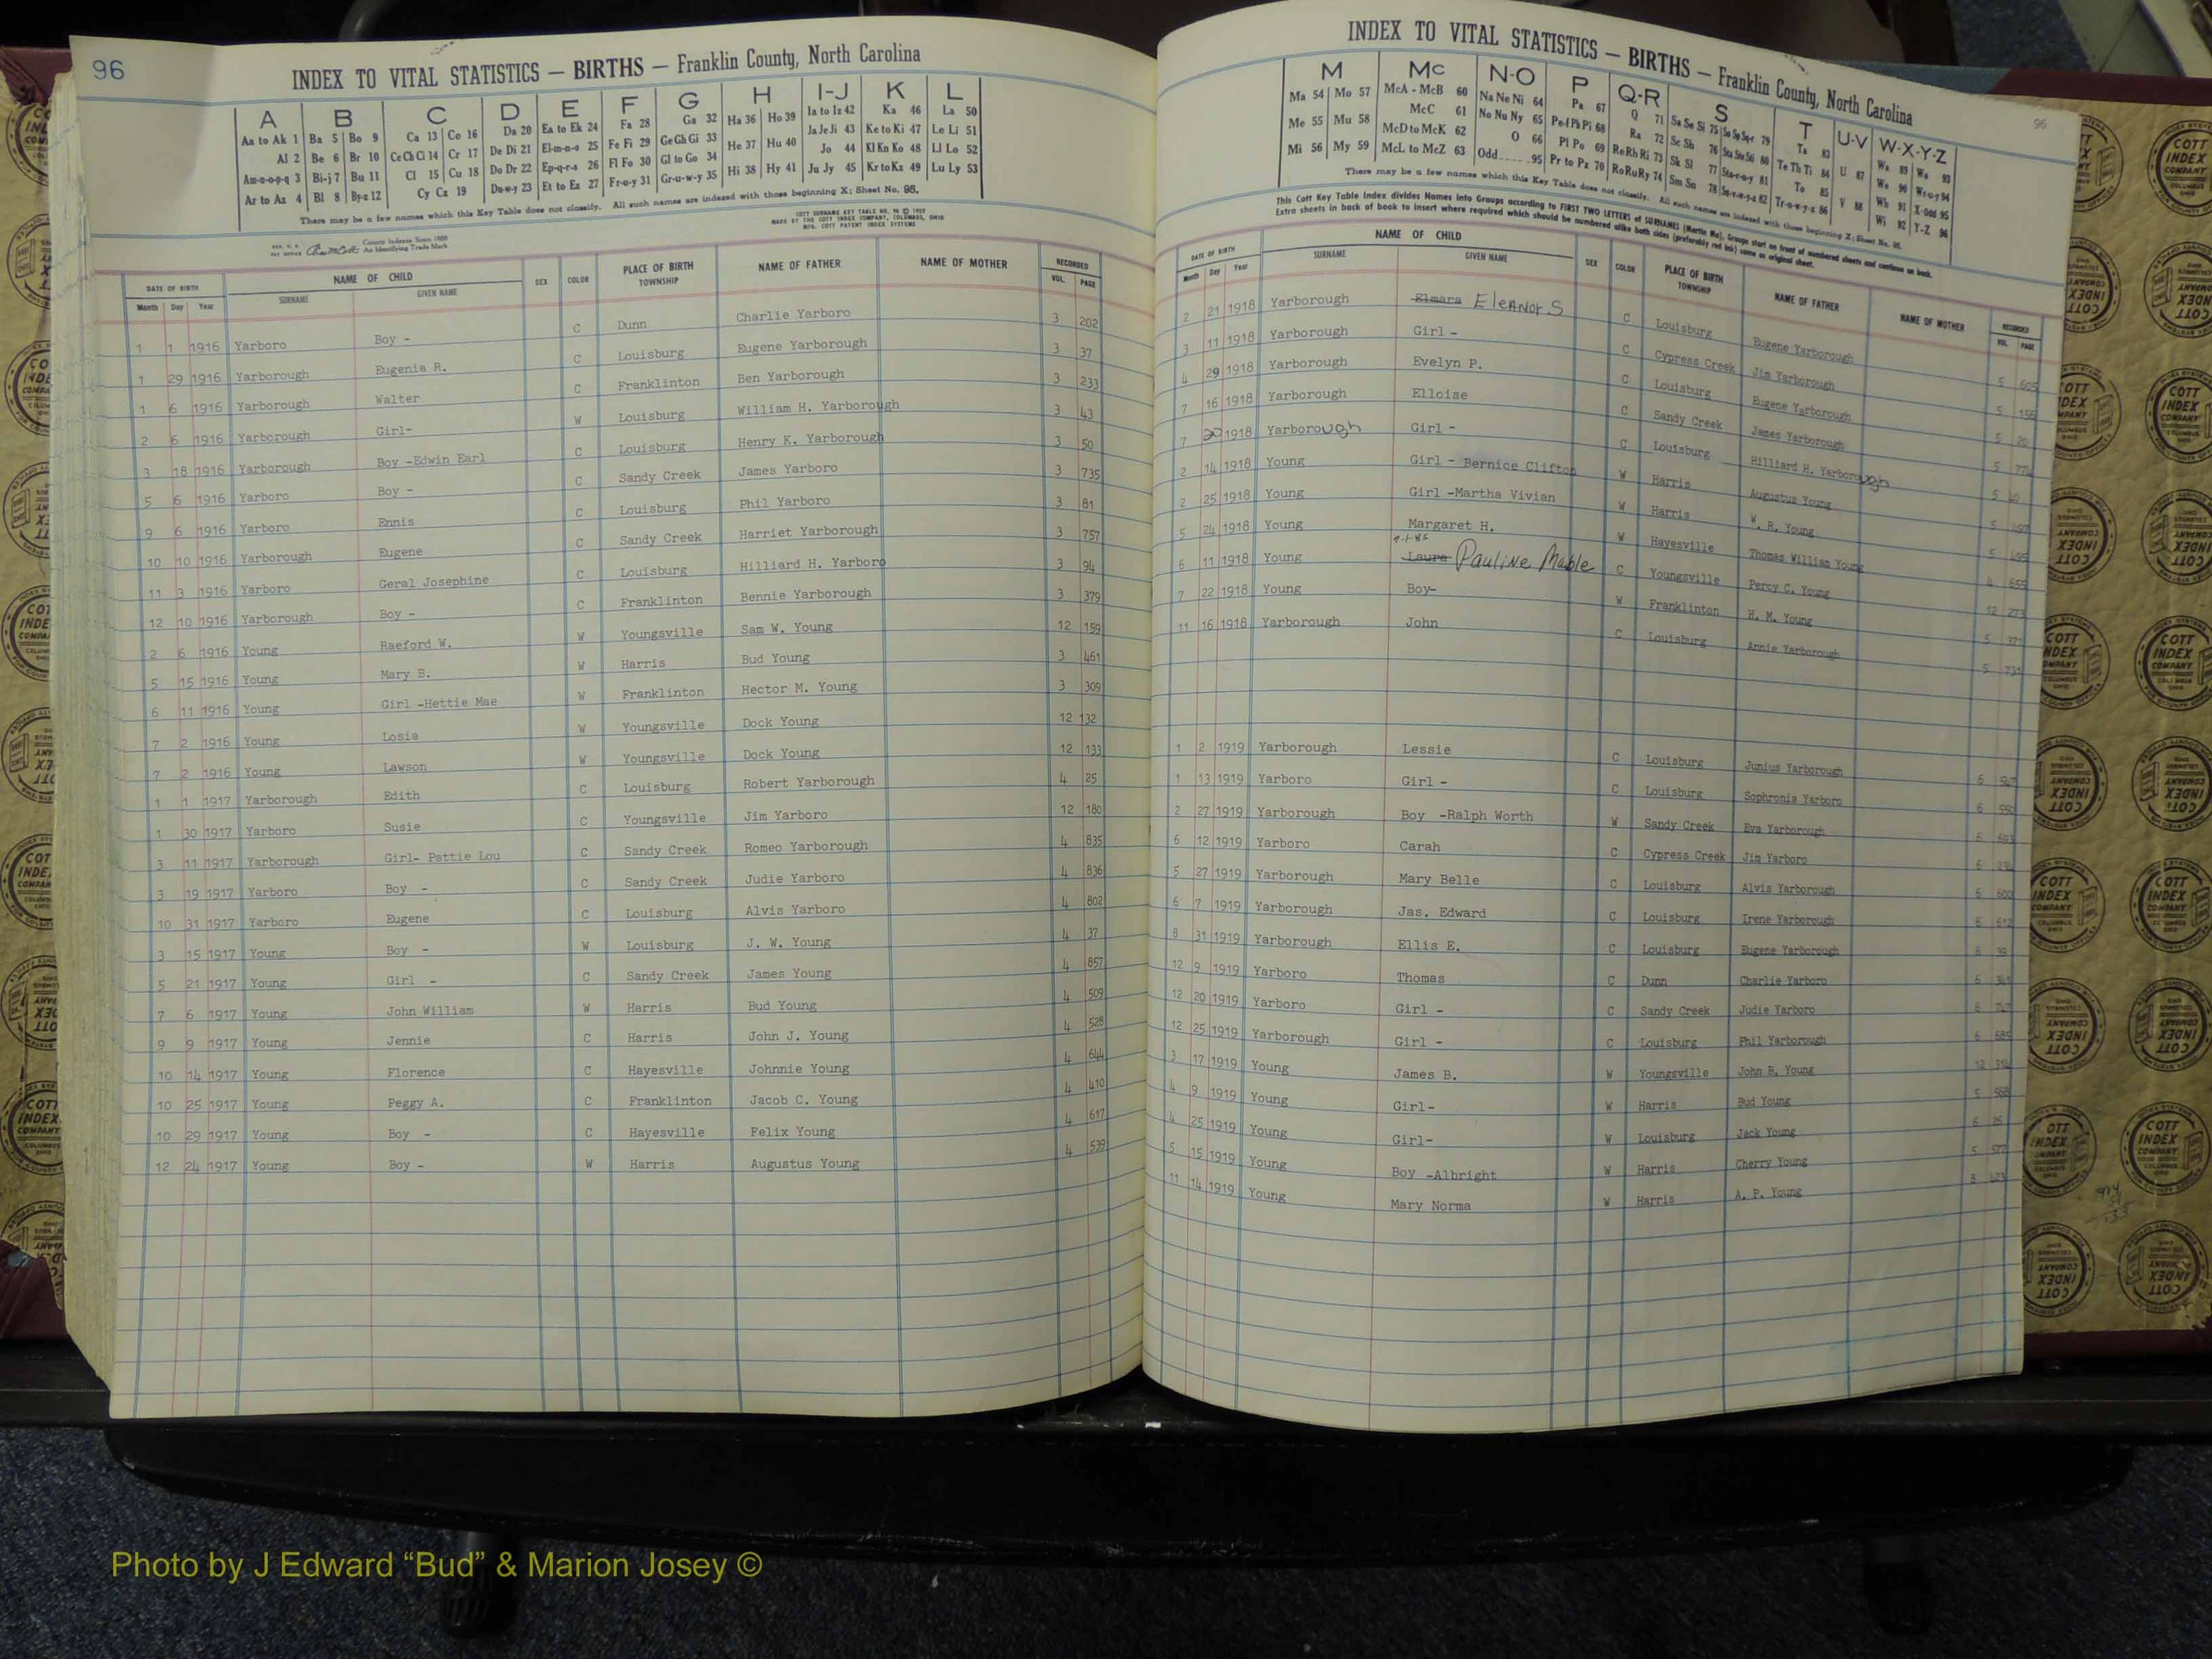 96
INDEX TO VITAL STATISTICS — BIRTHS — Franklin County, North Carolina
A B C D E F G H I-J K L
Aa to Ak 1 Ba 5 Bo 9 Ca 13 Co 16 Da 20 Ea to Ek 24 Fa 28 Ga 32 Ha 36 Ho 39 Ia to Iz 42 Ka 46 La 50
Al 2 Be 6 Br 10 Ce Ch Ci 14 Cr 17 De Di 21 El-m-n-o 25 Fe Fi 29 Ge Gh Gi 33 He 37 Hu 40 Ja Je Ji 43 Ke to Ki 47 Le Li 51
Am-n-o-p-q 3 Bi-j 7 Bu 11 Cl 15 Cu 18 Do Dr 22 Ep-q-r-s 26 Fl Fo 30 Gl to Go 34 Hi 38 Hy 41 Jo 44 Kl Kn Ko 48 Ll Lo 52
Ar to Az 4 Bl 8 By-z 12 Cy Cz 19 Du-w-y 23 Et to Ez 27 Fr-u-y 31 Gr-u-w-y 35 Ju Jy 45 Kr to Kz 49 Lu Ly 53
There may be a few names which this Key Table does not classify. All such names are indexed with those beginning X; Sheet No. 95.
County Indexes Since 1888
An Identifying Trade Mark
MADE BY THE COTT INDEX COMPANY, COLUMBUS, OHIO
MFG. COTT PATENT INDEX SYSTEMS
DATE OF BIRTH NAME OF CHILD SEX COLOR PLACE OF BIRTH TOWNSHIP NAME OF FATHER NAME OF MOTHER RECORDED
Month Day Year SURNAME GIVEN NAME VOL. PAGE
1 1 1916 Yarboro Boy - C Dunn Charlie Yarboro 3 202
1 29 1916 Yarborough Eugenia R. C Louisburg Eugene Yarborough 3 37
1 6 1916 Yarborough Walter C Franklinton Ben Yarborough 3 233
2 6 1916 Yarborough Girl- W Louisburg William H. Yarborough 3 43
3 18 1916 Yarborough Boy -Edwin Earl C Louisburg Henry K. Yarborough 3 50
5 6 1916 Yarboro Boy - C Sandy Creek James Yarboro 3 735
9 6 1916 Yarboro Ennis C Louisburg Phil Yarboro 3 81
10 10 1916 Yarborough Eugene C Sandy Creek Harriet Yarborough 3 757
11 3 1916 Yarboro Geral Josephine C Louisburg Hilliard H. Yarboro 3 94
12 10 1916 Yarborough Boy - C Franklinton Bennie Yarborough 3 379
2 6 1916 Young Raeford W. W Youngsville Sam W. Young 12 159
5 15 1916 Young Mary B. W Harris Bud Young 3 461
6 11 1916 Young Girl -Hettie Mae W Franklinton Hector M. Young 3 309
7 2 1916 Young Losia W Youngsville Dock Young 12 132
7 2 1916 Young Lawson W Youngsville Dock Young 12 133
1 1 1917 Yarborough Edith C Louisburg Robert Yarborough 4 25
1 30 1917 Yarboro Susie C Youngsville Jim Yarboro 12 180
3 11 1917 Yarborough Girl- Pettie Lou C Sandy Creek Romeo Yarborough 4 835
3 19 1917 Yarboro Boy - C Sandy Creek Judie Yarboro 4 836
10 31 1917 Yarboro Eugene C Louisburg Alvis Yarboro 4 802
3 15 1917 Young Boy - W Louisburg J. W. Young 4 37
5 21 1917 Young Girl - C Sandy Creek James Young 4 857
7 6 1917 Young John William W Harris Bud Young 4 509
9 9 1917 Young Jennie C Harris John J. Young 4 528
10 14 1917 Young Florence C Hayesville Johnnie Young 4 644
10 25 1917 Young Peggy A. C Franklinton Jacob C. Young 4 410
10 29 1917 Young Boy - C Hayesville Felix Young 4 617
12 24 1917 Young Boy - W Harris Augustus Young 4 539
INDEX TO VITAL STATISTICS — BIRTHS — Franklin County, North Carolina
96
M Mc N-O P Q-R S T U-V W-X-Y-Z
Ma 54 Mo 57 McA - McB 60 Na Ne Ni 64 Pa 67 Q 71 Sa Se Si 75 79 Ta 83 Wa 89 Wo 93
Me 55 Mu 58 McC 61 No Nu Ny 65 Pe-f Ph Pi 68 Ra 72 Sc Sh 76 Te Th Ti 84 U 87 We 90 Wr-u-y 94
Mi 56 My 59 McD to McK 62 O 66 Pl Po 69 Re Rh Ri 73 Sk Sl 77 81 To 85 Wh 91 X-Odd 95
McL to McZ 63 Odd 95 Pr to Pz 70 Ro Ru Ry 74 Sm Sn 78 82 Tr-u-w-y-z 86 V 88 Wi 92 Y-Z 96
There may be a few names which this Key Table does not classify. All such names are indexed with those beginning X; Sheet No. 95.
This Cott Key Table Index divides Names into Groups according to FIRST TWO LETTERS of SURNAMES (Martin Ma), Groups start on front of numbered sheets and continue on back.
Extra sheets in back of book to insert where required which should be numbered alike both sides (preferably red ink) same as original sheet.
DATE OF BIRTH NAME OF CHILD SEX COLOR PLACE OF BIRTH TOWNSHIP NAME OF FATHER NAME OF MOTHER RECORDED
Month Day Year SURNAME GIVEN NAME VOL. PAGE
2 21 1918 Yarborough Elmara Eleanor S C Louisburg Eugene Yarborough 5 605
3 11 1918 Yarborough Girl - C Cypress Creek Jim Yarborough 5
4 29 1918 Yarborough Evelyn P. C Louisburg Eugene Yarborough 5 20
7 16 1918 Yarborough Elloise C Sandy Creek James Yarborough 5
7 20 1918 Yarborough Girl - C Louisburg Hilliard H. Yarborough 5
2 14 1918 Young Girl - Bernice Clifton W Harris Augustus Young 5
2 25 1918 Young Girl -Martha Vivian W Harris W. R. Young 5
5 24 1918 Young Margaret H. W Hayesville Thomas William Young 4
6 11 1918 Young Laura Pauline Mable C Youngsville Percy C. Young 12 273
7 22 1918 Young Boy- W Franklinton H. M. Young 5
11 16 1918 Yarborough John C Louisburg Annie Yarborough 5 731
1 2 1919 Yarborough Lessie C Louisburg Junius Yarborough 6
1 13 1919 Yarboro Girl - C Louisburg Sophronia Yarboro 6 550
2 27 1919 Yarborough Boy -Ralph Worth W Sandy Creek Eva Yarborough 6
6 12 1919 Yarboro Carah C Cypress Creek Jim Yarboro 6
5 27 1919 Yarborough Mary Belle C Louisburg Alvis Yarborough 6 600
6 7 1919 Yarborough Jas. Edward C Louisburg Irene Yarborough 6 612
8 31 1919 Yarborough Ellis E. C Louisburg Eugene Yarborough 6 39
12 9 1919 Yarboro Thomas C Dunn Charlie Yarboro 6
12 20 1919 Yarboro Girl - C Sandy Creek Judie Yarboro 6
12 25 1919 Yarborough Girl - C Louisburg Phil Yarborough 6 685
3 17 1919 Young James B. W Youngsville John B. Young 12
4 9 1919 Young Girl- W Harris Bud Young 5
4 25 1919 Young Girl- W Louisburg Jack Young 6
5 15 1919 Young Boy -Albright W Harris Cherry Young 5
11 14 1919 Young Mary Norma W Harris A. P. Young
Photo by J Edward “Bud” & Marion Josey ©